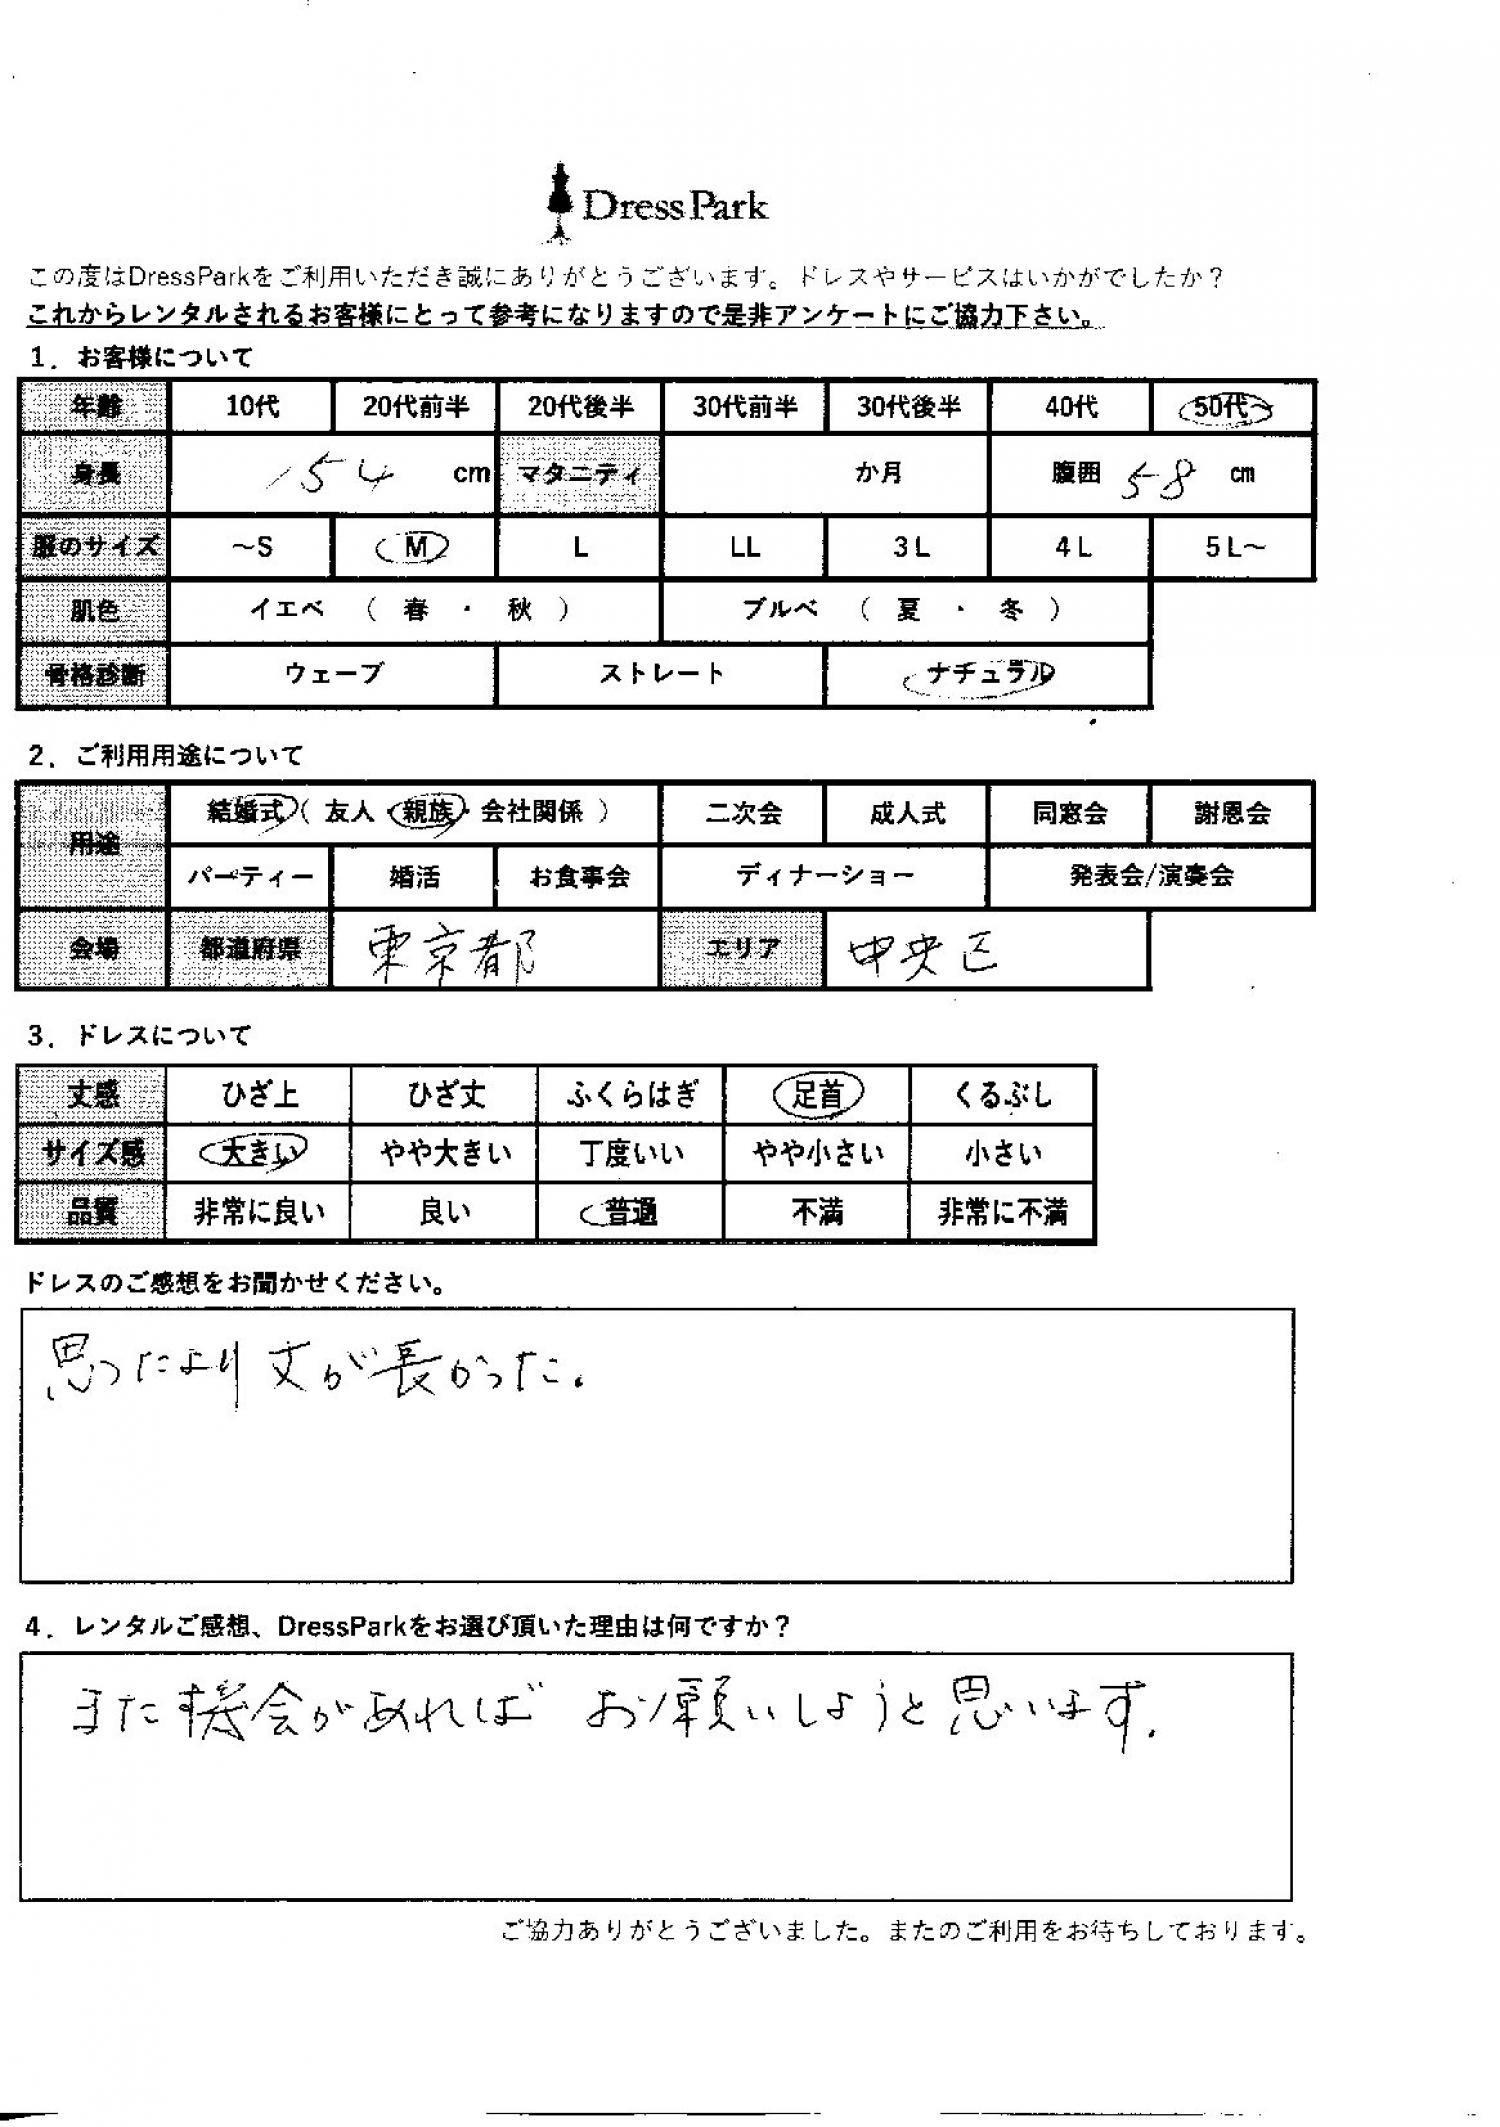 DressPark
この度はDressParkをご利用いただき誠にありがとうございます。ドレスやサービスはいかがでしたか？
これからレンタルされるお客様にとって参考になりますので是非アンケートにご協力下さい。
1．お客様について
年齢 10代 20代前半 20代後半 30代前半 30代後半 40代 50代～
身長 154 cm マタニティ か月 腹囲 58 cm
服のサイズ ～S M L LL 3L 4L 5L～
肌色 イエベ （ 春 ・ 秋 ） ブルベ （ 夏 ・ 冬 ）
骨格診断 ウェーブ ストレート ナチュラル
2．ご利用用途について
用途 結婚式（ 友人・親族・会社関係 ） 二次会 成人式 同窓会 謝恩会
パーティー 婚活 お食事会 ディナーショー 発表会/演奏会
会場 都道府県 東京都 エリア 中央区
3．ドレスについて
丈感 ひざ上 ひざ丈 ふくらはぎ 足首 くるぶし
サイズ感 大きい やや大きい 丁度いい やや小さい 小さい
品質 非常に良い 良い 普通 不満 非常に不満
ドレスのご感想をお聞かせください。
思ったより丈が長かった。
4．レンタルご感想、DressParkをお選び頂いた理由は何ですか？
また機会があれば お願いしようと思います。
ご協力ありがとうございました。またのご利用をお待ちしております。